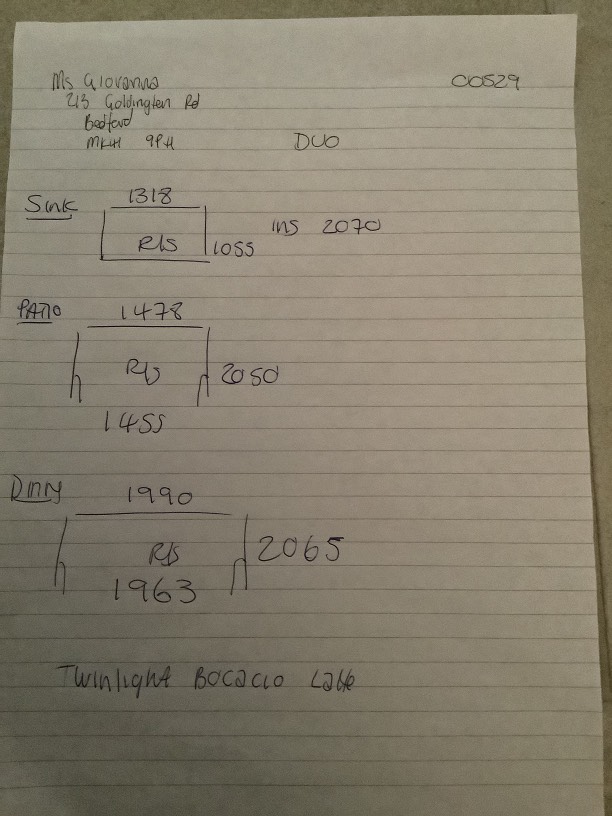 Ms Giovanna 00529
213 Goldington Rd
Bedford
MK41 9PH DUO
Sink 1318
R/S 1055 ins 2070
PATIO 1478
R/S 2050
1455
Dinny 1990
R/S 2065
1963
Twinlight Bocacio Latte